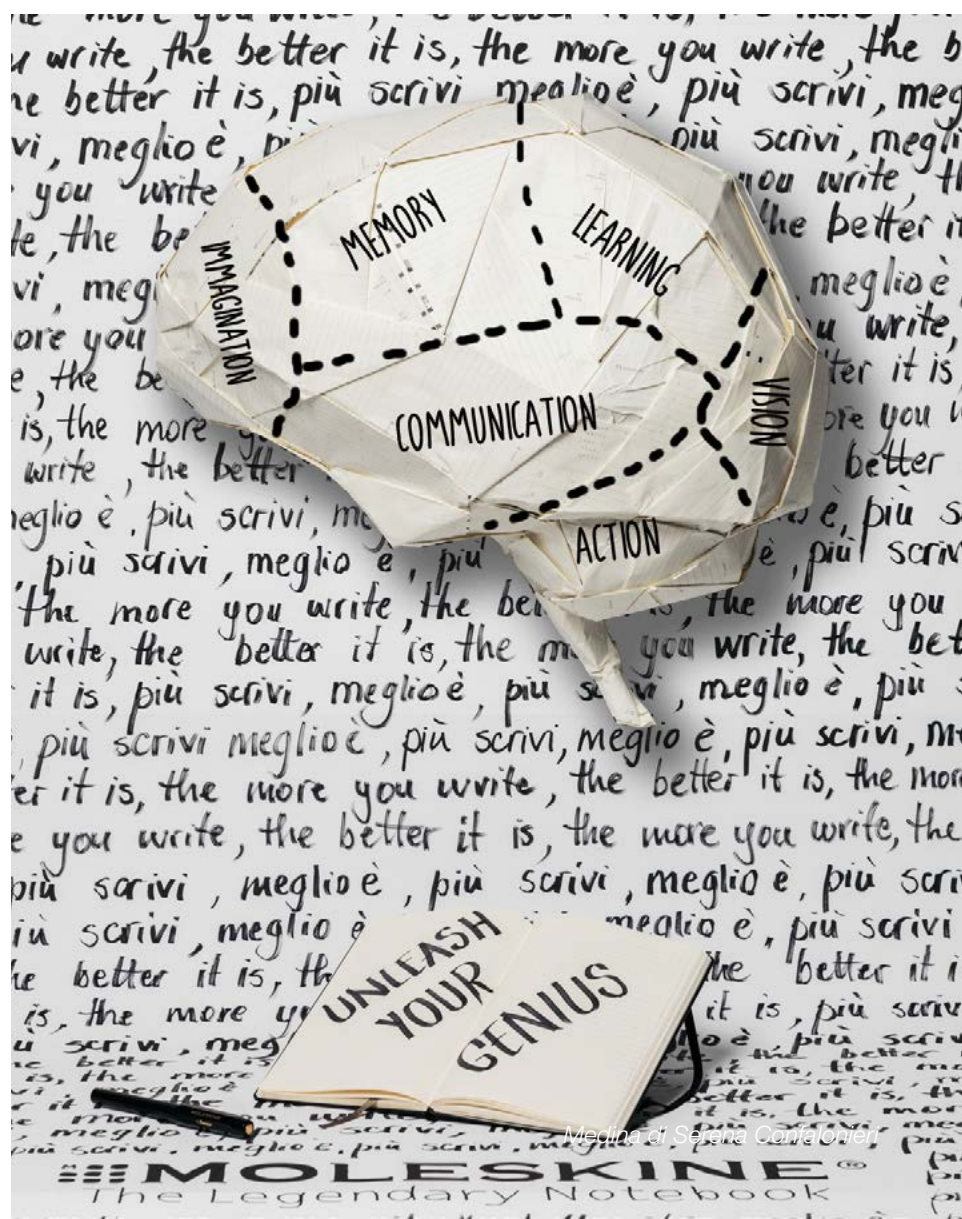 write, the better it is, the more you write, the b
better it is, più scrivi meglio è, più scrivi, meg
vi, meglio è, più scrivi, megli
you write you write, th
te, the be the better it
vi, meg meglio è
ore you u write,
e, the be ter it is
is, the more ore you w
write, the better better
eglio è, più scrivi, me è, più s
, più scrivi, meglio è, più è, più scriv
the more you write, the bet is, the more you
write, the better it is, the more you write, the bet
it is, più scrivi, meglio è, più scrivi, meglio è, più s
, più scrivi meglio è, più scrivi, meglio è, più scrivi, m
er it is, the more you write, the better it is, the mor
e you write, the better it is, the more you write, the
più scrivi, meglio è, più scrivi, meglio è, più scri
iù scrivi, meglio è meglio è, più scrivi
he better it is, th he better it i
is, the more y it is, più scriv
ù scrivi, meg
IMMAGINATION
MEMORY
LEARNING
COMMUNICATION
VISION
ACTION
UNLEASH
YOUR
GENIUS
Medina di Serena Confalonieri
MOLESKINE®
The Legendary Notebook